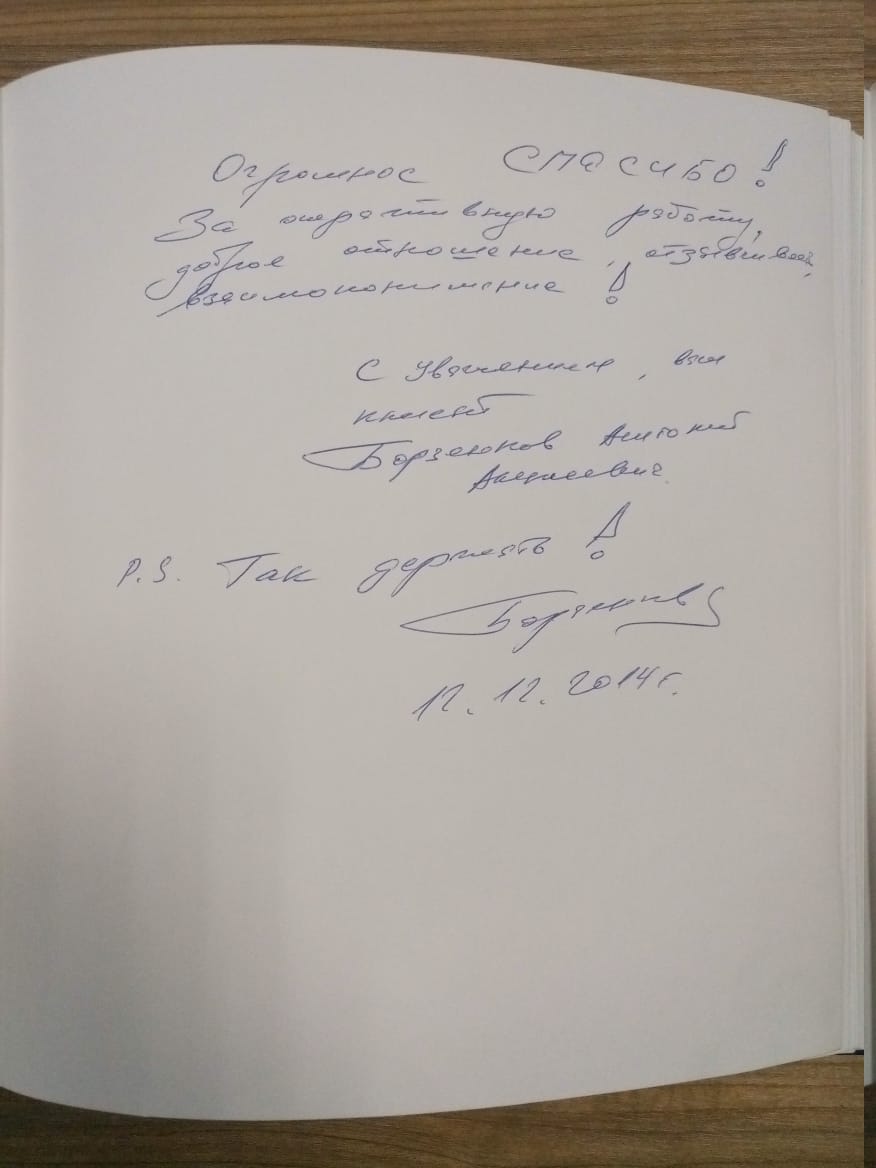 Огромное СПАСИБО!
За оперативную работу,
доброе отношение,
взаимопонимание!
С уважением, ваш
клиент
Борзенков Анатолий
P.S. Так держать!
Борзенков
12.12.2014г.